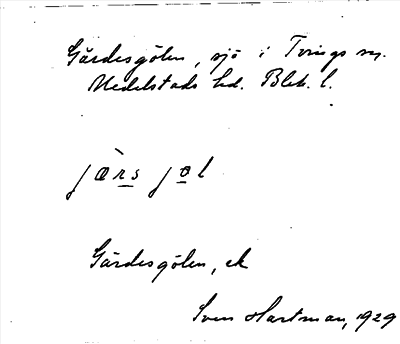 Gärdesgölen, sjö i Tvings sn.
Medelstads hd. Blek. l.
jæ̀rs jøl
Gärdesgölen, ek
Sven Hartman, 1929